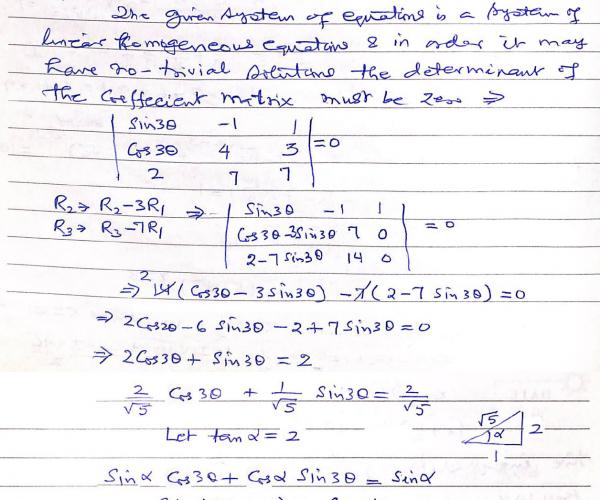 The given system of equations is a system of
linear homogeneous equations & in order it may
have no-trivial solutions the determinant of
the coeffecient matrix must be zero ⇒
| Sin3θ -1 1 |
| Cos3θ 4 3 | = 0
| 2 7 7 |
R2→ R2-3R1 ⇒ | Sin3θ -1 1 |
R3→ R3-7R1 | Cos3θ-3Sin3θ 7 0 | = 0
| 2-7Sin3θ 14 0 |
⇒ 2 14(Cos3θ - 3Sin3θ) - 7(2-7 Sin3θ) = 0
⇒ 2Cos2θ - 6 Sin3θ - 2 + 7 Sin3θ = 0
⇒ 2Cos3θ + Sin3θ = 2
2/√5 Cos3θ + 1/√5 Sin3θ = 2/√5
Let tanα = 2
√5 α 2
1
Sinα Cos3θ + Cosα Sin3θ = Sinα